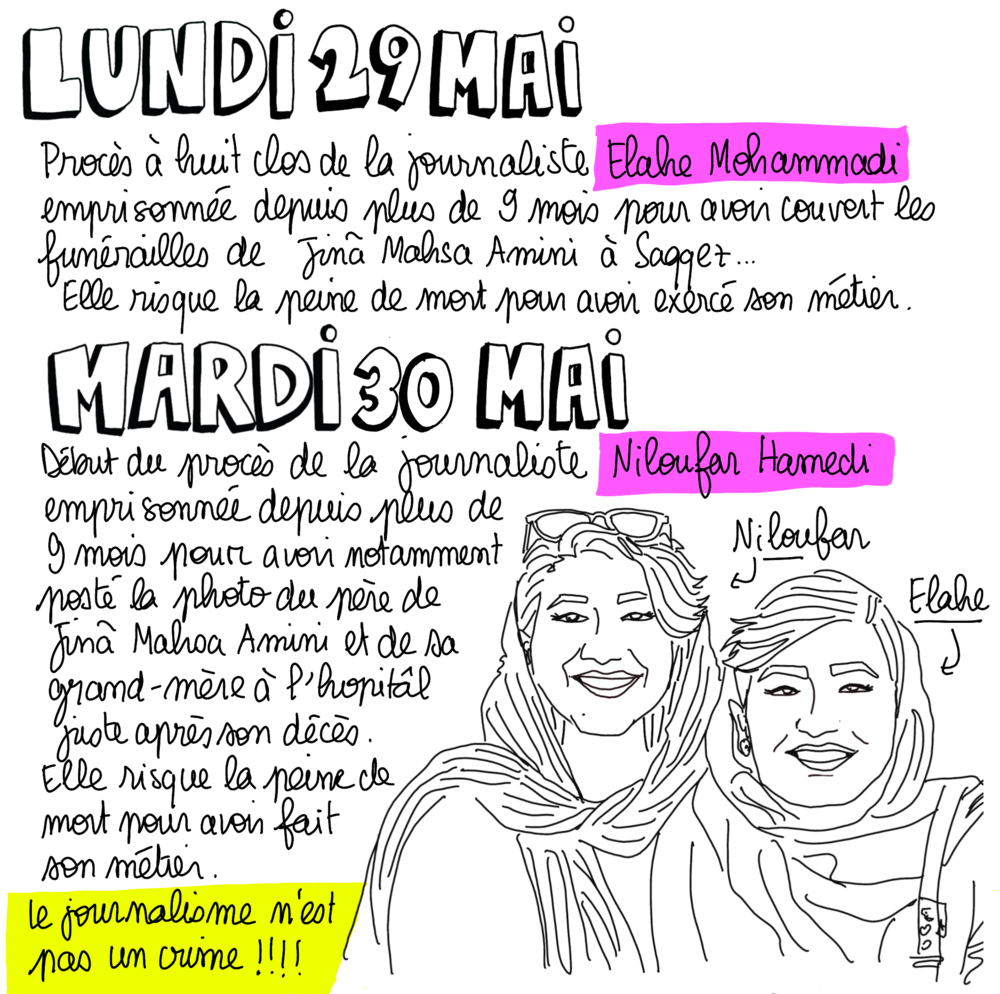 LUNDI 29 MAI
Procès à huit clos de la journaliste Elahe Mohammadi
emprisonnée depuis plus de 9 mois pour avoir couvert les
funérailles de Jinâ Mahsa Amini à Saqqez...
Elle risque la peine de mort pour avoir exercé son métier.
MARDI 30 MAI
Début du procès de la journaliste Niloufar Hamedi
emprisonnée depuis plus de
9 mois pour avoir notamment
posté la photo du père de
Jinâ Mahsa Amini et de sa
grand-mère à l'hopitâl
juste après son décès.
Elle risque la peine de
mort pour avoir fait
son métier.
Le journalisme n'est
pas un crime !!!!
Niloufar
Elahe